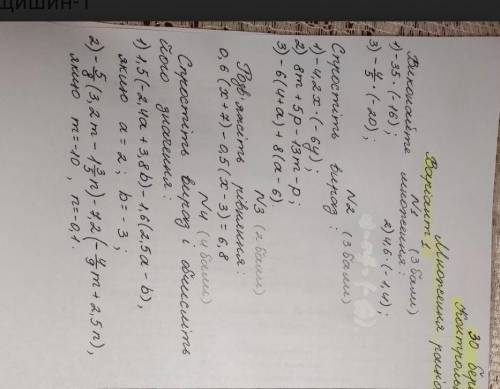 щишин-1
30
Контрол
Множення раціо
Варіант 1
№1 (3 бали)
Виконайте множення:
1) -35·(-16); 2) 4,6·(-1,4);
3) -4/5·(-20);
№2 (3 бали)
Спростіть вираз:
1) -4,2x·(-6y);
2) 8m+5p-13m-p;
3) -6(4+a)+8(a-6)
№3 (2 бали)
Розв'яжіть рівняння:
0,6(x+7)-0,5(x-3)=6,8
№4 (4 бали)
Спростіть вираз і обчисліть
його значення:
1) 1,5(-2,4a+3,8b)-1,6(2,5a-b),
якщо a=2; b=-3;
2) -5/8(3,2m-1 3/5n)-7,2(-4/9m+2,5n),
якщо m=-10, n=-0,1.